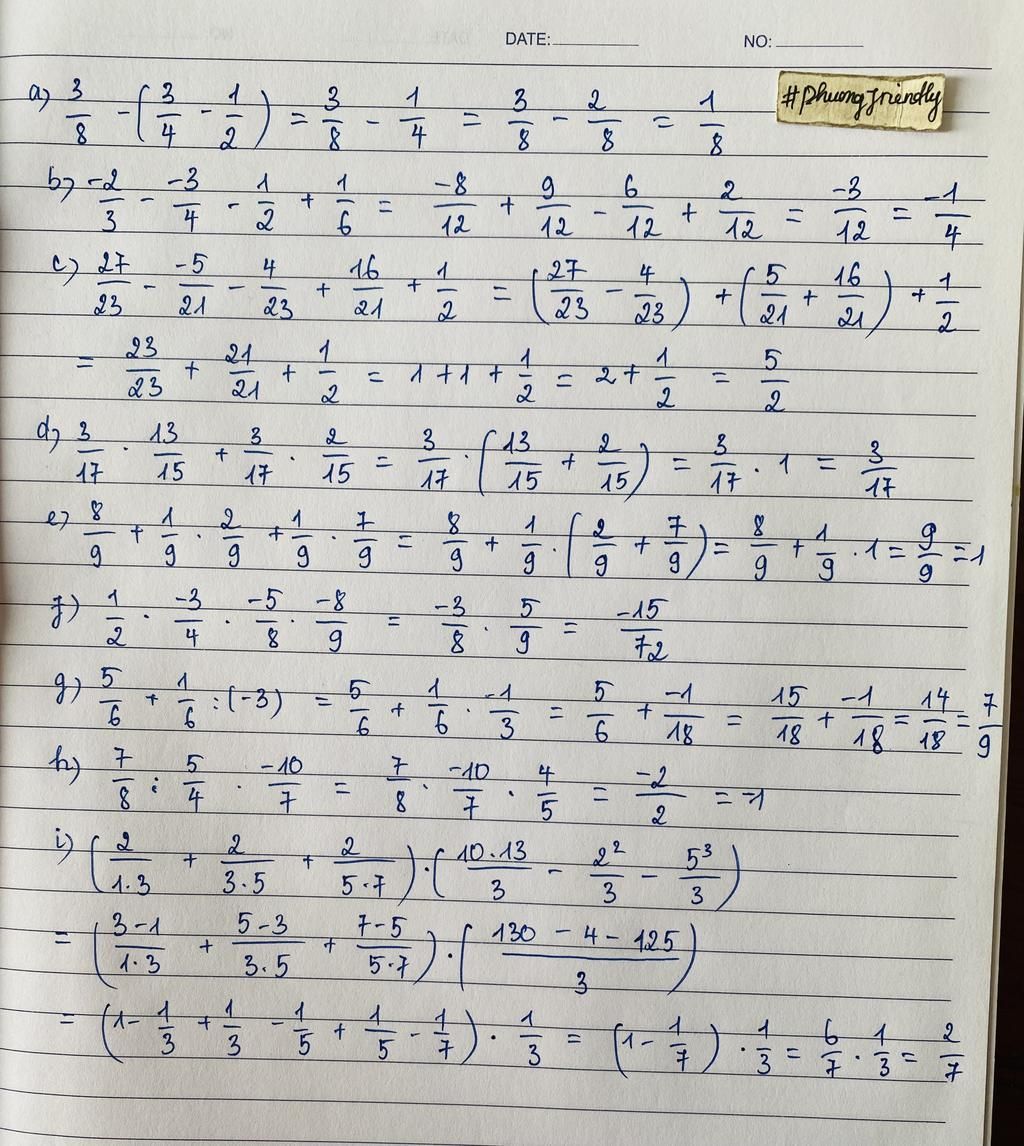 DATE: NO:
#phuongfriendly
a) 3/8 - (3/4 - 1/2) = 3/8 - 1/4 = 3/8 - 2/8 = 1/8
b) -2/3 - -3/4 - 1/2 + 1/6 = -8/12 + 9/12 - 6/12 + 2/12 = -3/12 = -1/4
c) 27/23 - -5/21 - 4/23 + 16/21 + 1/2 = (27/23 - 4/23) + (5/21 + 16/21) + 1/2
= 23/23 + 21/21 + 1/2 = 1 + 1 + 1/2 = 2 + 1/2 = 5/2
d) 3/17 . 13/15 + 3/17 . 2/15 = 3/17 . (13/15 + 2/15) = 3/17 . 1 = 3/17
e) 8/9 + 1/9 . 2/9 + 1/9 . 7/9 = 8/9 + 1/9 . (2/9 + 7/9) = 8/9 + 1/9 . 1 = 9/9 = 1
f) 1/2 . -3/4 . -5/8 . -8/9 = -3/8 . 5/9 = -15/72
g) 5/6 + 1/6 : (-3) = 5/6 + 1/6 . -1/3 = 5/6 + -1/18 = 15/18 + -1/18 = 14/18 = 7/9
h) 7/8 : 5/4 . -10/7 = 7/8 . -10/7 . 4/5 = -2/2 = -1
i) (2/1.3 + 2/3.5 + 2/5.7) . (10.13/3 - 2²/3 - 5³/3)
= (3-1/1.3 + 5-3/3.5 + 7-5/5.7) . (130 - 4 - 125/3)
= (1 - 1/3 + 1/3 - 1/5 + 1/5 - 1/7) . 1/3 = (1 - 1/7) . 1/3 = 6/7 . 1/3 = 2/7